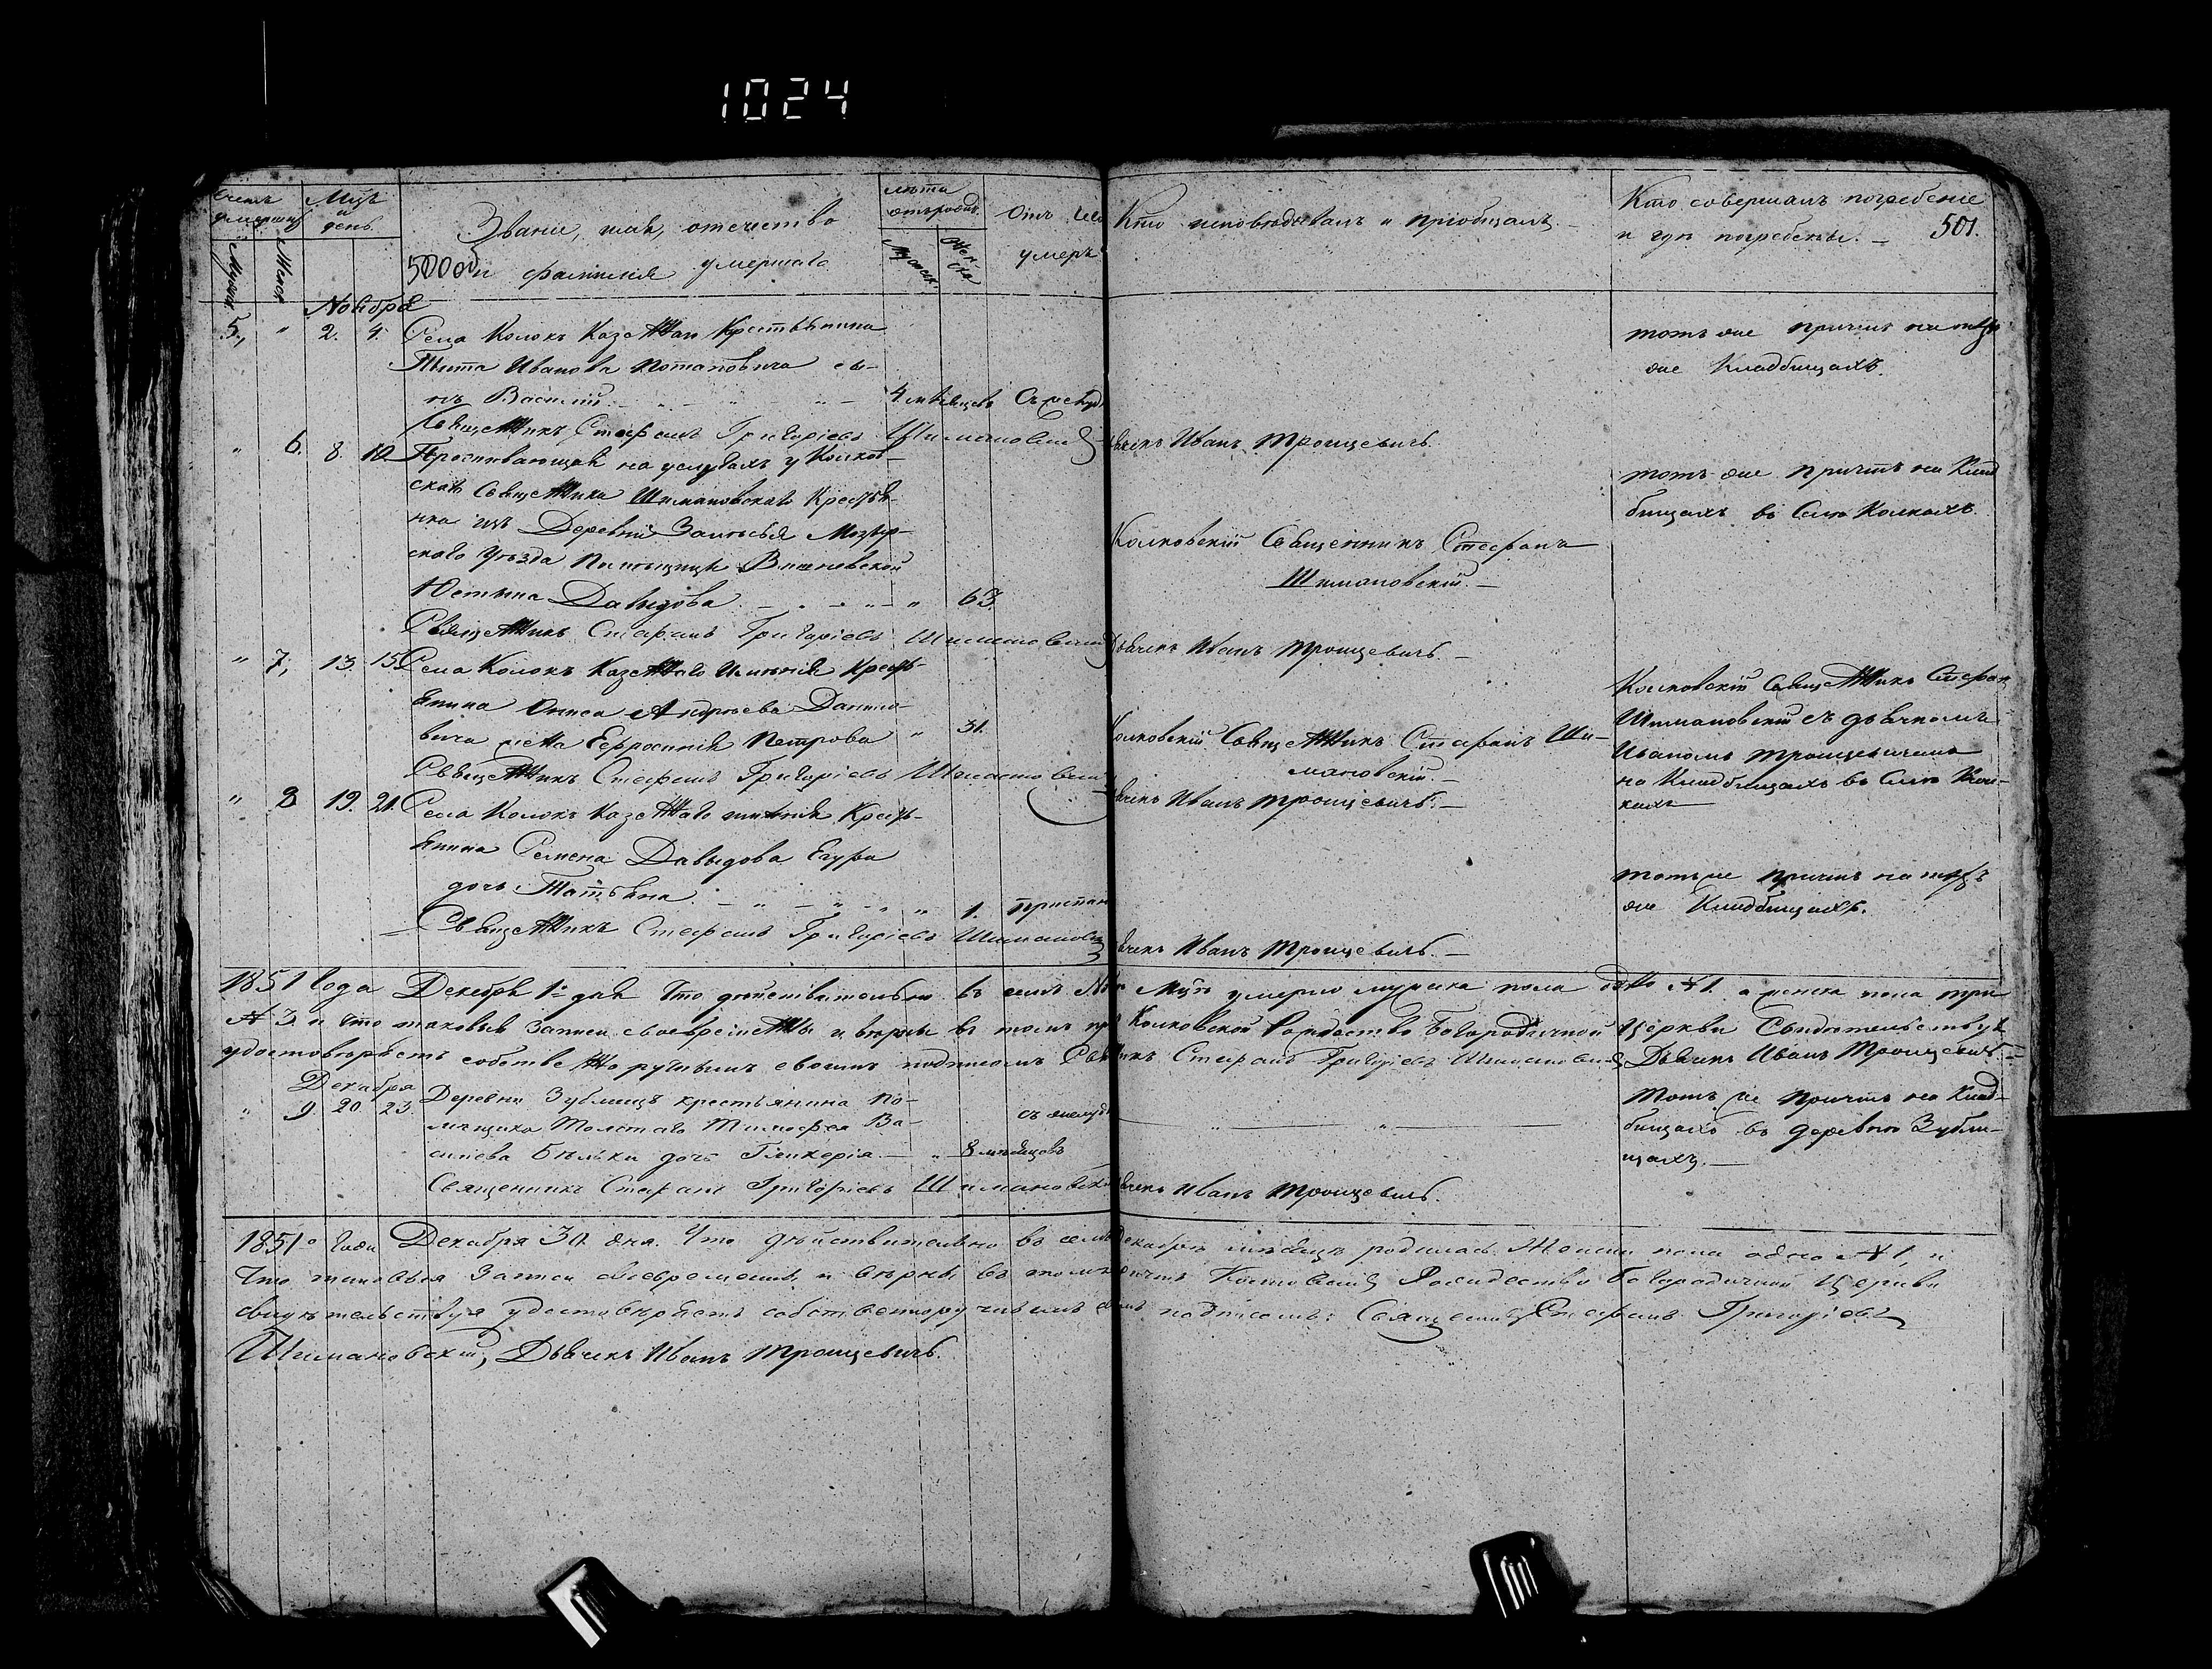 1024
Счетъ умершихъ
Мужск
Женск
Мцъ и день
Званіе, имя, отечество
500 об и фамилия умершаго
лѣта отъ рожд.
Мужск.
Женска
Отъ чего умеръ
Кто исповѣдывалъ и пріобщалъ. –
Кто совершалъ погребеніе
и гдѣ погребены. – 501.
Ноября
5, " 2. 4. Села Колокъ Казеннаго Крестьянина
Тита Иванова Потаповича сы-
нъ Василій 4 мѣсяцовъ
тотъ же причтъ на
же Кладбищахъ.
Священникъ Стефанъ Григорiевъ Шимановскій Дьячекъ Иванъ Троицевичъ.
" 6. 8. 10. Проживающая на услугахъ у Колков-
скаго Священника Шимановскаго Крестья-
нка изъ Деревни Залѣсья Мозыр-
скаго Уѣзда Помѣщицы Вишневской
Юстина Давыдова " 63.
Колковскій Священникъ Стефанъ
Шимановскій. –
тотъ же причтъ на Клад
бищахъ въ Селѣ Колкахъ.
Священникъ Стефанъ Григорiевъ Шимановскій Дьячекъ Иванъ Троицевичъ. –
" 7, 13. 15. Села Колокъ Казеннаго Имѣнія Кресть-
янина Андрѣева Данило-
вича жена Ефросинія Петрова " 31.
Колковскій Священникъ Стефанъ Ши-
мановскій. –
Колковскій Священникъ Стефан
Шимановскій съ дьячкомъ
Иваномъ Троицевичемъ
на Кладбищахъ въ Селѣ Кол-
кахъ
Священникъ Стефанъ Григорiевъ Шимановскій Дьячекъ Иванъ Троицевичъ. –
" 8 19. 21. Села Колокъ Казеннаго имѣнія Кресть-
янина Семена Давыдова Егура
дочь Татьяна " 1.
тотъ же причтъ на
же Кладбищахъ.
Священникъ Стефанъ Григорiевъ Шимановскій Дьячекъ Иванъ Троицевичъ. –
1851 года Декабря 1го дня Что дѣйствительно въ семъ Мцѣ умерло мужска пола одно №1. а женска пола три
№ 3. и что таковыя записи своевременны и вѣрны въ томъ Колковской Рождество Богородичной Церкви Свидѣтельствуя
удостовѣряетъ собственноручнымъ своимъ подписомъ Священникъ Стефанъ Григорiевъ Шимановскій Дьячекъ Иванъ Троицевичъ. –
Декабря
" 9. 20. 23. Деревни Зубищъ крестьянина по-
мѣщика Толстаго Тимофея Ва-
силева Бѣльки дочь Гликерія – " 8 мѣсяцовъ
Тотъ же Причтъ на Клад-
бищахъ въ деревнѣ Зуби-
щахъ. –
Священникъ Стефанъ Григорiевъ Шимановскій Дьячекъ Иванъ Троицевичъ.
1851го Года Декабря 30. дня. Что дѣйствительно въ семъ декабрѣ мѣсяцѣ родилась Женска пола одна №1, и
Что таковыя Записи своевременны, и вѣрны, въ томъ причтъ Колковской Рождество Богородичной Церкви
свидѣтельствуя удостовѣряетъ собственноручнымъ своимъ подписомъ: Священникъ Стефанъ Григорiевъ
Шимановскій, Дьячекъ Иванъ Троицевичъ.